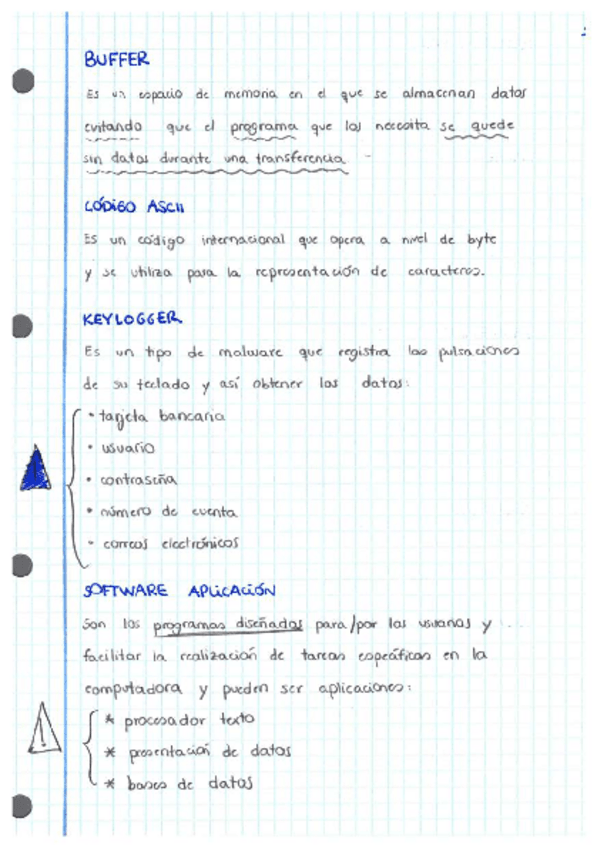 BUFFER
Es un espacio de memoria en el que se almacenan datos
evitando que el programa que los necesita se quede
sin datos durante una transferencia
CÓDIGO ASCII
Es un código internacional que opera a nivel de byte
y se utiliza para la representación de caracteres.
KEYLOGGER
Es un tipo de malware que registra las pulsaciones
de su teclado y así obtener los datos:
• tarjeta bancaria
• usuario
• contraseña
• número de cuenta
• correos electrónicos
SOFTWARE APLICACIÓN
Son los programas diseñados para/por los usuarios y
facilitar la realización de tareas específicas en la
computadora y pueden ser aplicaciones:
* procesador texto
* presentación de datos
* bases de datos